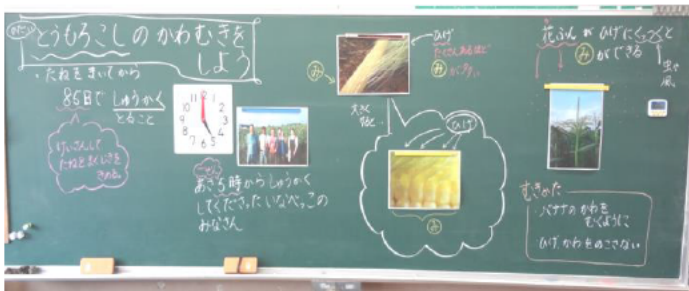 とうもろこしのかわむきを
しよう
・たねをまいてから
85日で しゅうかく
とること
けいさんして
たねをまく
きめる。
11 12 1
10 2
9 3
8 4
7 6 5
あさ5時からしゅうかく
してくださったいなべっこの
みなさん
み
ひげ
たくさんあるほど
みが多い
大きく
すると
ひげ
み
花ふんがひげにくっつくと
みができる
虫や
風
むきかた
バナナのかわを
むくように
ひげ、かわをのこさない